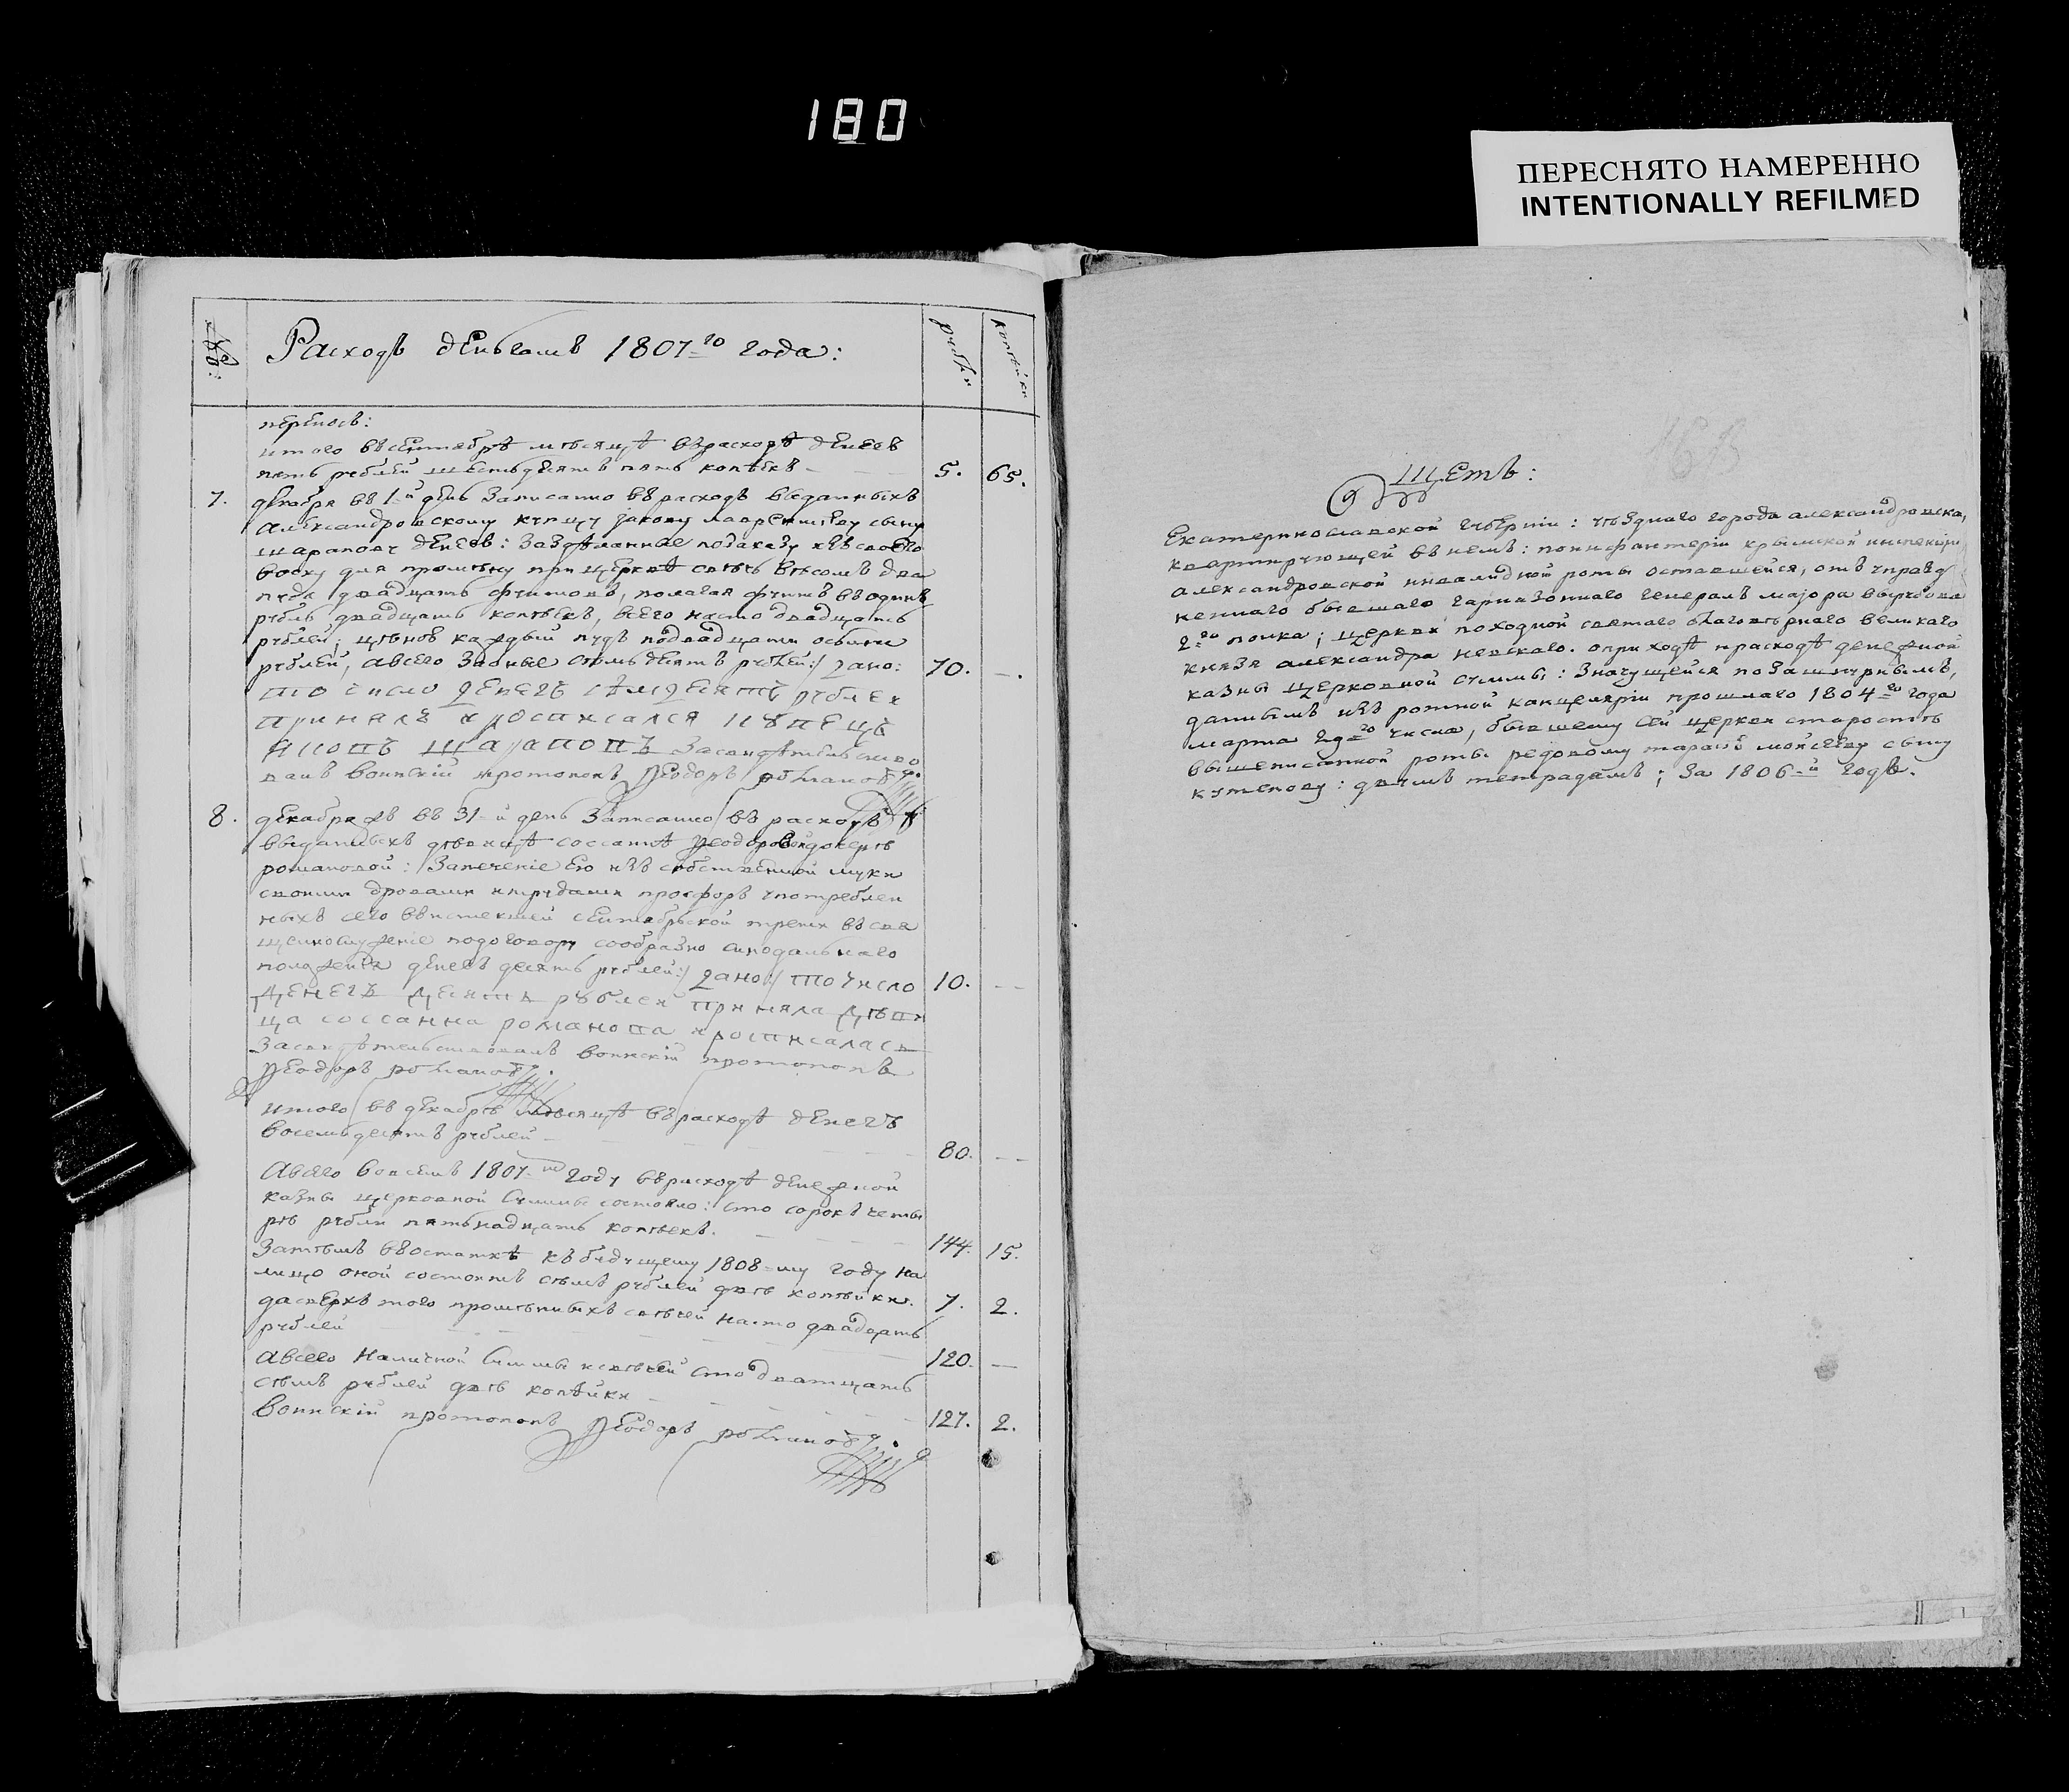 180
ПЕРЕСНЯТО НАМЕРЕННО
INTENTIONALLY REFILMED
№:
Расходъ деньгамъ 1807=го года:
рубли
копейки
переносъ:
итого въ сентябрѣ мѣсяцѣ въ расходѣ денегъ
пять рублей шестьдесятъ пять копѣекъ 5. 65.
7. декабря въ 1=й день Записанно въ расходъ выданныхъ
александровскому купцу якову лаврентіеву сыну
шарапову денегъ: За зделанные по заказу изъ своего
воску для промену при церквѣ свечь вѣсомъ два
пуда двадцать фунтовъ, полагая фунтъ въ одинъ
рубль двадцать копѣекъ, всего на сто двадцать
рублей; ценою каждый пудъ по двадцати осьми
рублей, а всего За оные семьдесятъ рублей:/ Дано: 70. —.
то число Денегъ семДесять рублей
принялъ и росписался купецъ
Яковъ Шараповъ Засвидѣтельство
валъ воинскій протопопъ Ѳеодоръ романовъ.
8. декабря въ 31=й день Записанно въ расходъ
выданныхъ девицѣ соссанѣ Ѳеодоровой дочерѣ
романовой: За печеніе Ею изъ собственной муки
своими дровами и трудами просфоръ употреблен
ныхъ сего въ истекшей сентябрьской трети въ свя
щеннослуженіе по договору сообразно синодальнаго
положенія денегъ десять рублей:/ Дано:/ то число 10. —
Денегъ Десять рублей приняла Деви
ца соссанна романова и росписалась
Засвидѣтельствовалъ воинскій протопопъ
Ѳеодоръ романовъ.
итого въ декабрѣ мѣсяцѣ въ расходѣ денегъ
восемьдесятъ рублей 80. —
А всего во всемъ 1807=мъ году въ расходѣ денежной
казны церковной суммы состояло: сто сорокъ четы
ре рубли пятьнадцать копѣекъ. 144. 15.
Затемъ въ остаткѣ къ будущему 1808=му году на
лицо оной состоитъ семь рублей две копѣйки. 7. 2.
да сверхъ того променныхъ свечей на сто двадцать
рублей 120. —
А всего наличной суммы и свечей сто двадцать
семь рублей две копѣйки 127. 2.
Воинскій протопопъ Ѳеодоръ романовъ.
Щетъ:
Екатеринославской губерніи: уезднаго города александровска,
квартирующей въ немъ: по инфантеріи крымской инспекціи
александровской инвалидной роты оставшейся, отъ упразд
неннаго бывшаго гарнизоннаго генералъ маіора вырубова
2=го полка; церкви походной святаго благовернаго великаго
князя александра невскаго. о приходѣ и расходѣ денежной
казны церковной суммы: Значущейся по Зашнурнымъ,
даннымъ изъ ротной канцеляріи прошлаго 1804=го года
марта 29=го числа, бывшему сей церкви старостѣ
вышеписанной роты редовому тарасу моисееву сыну
кутепову: двумъ тетрадамъ; За 1806=й годъ.